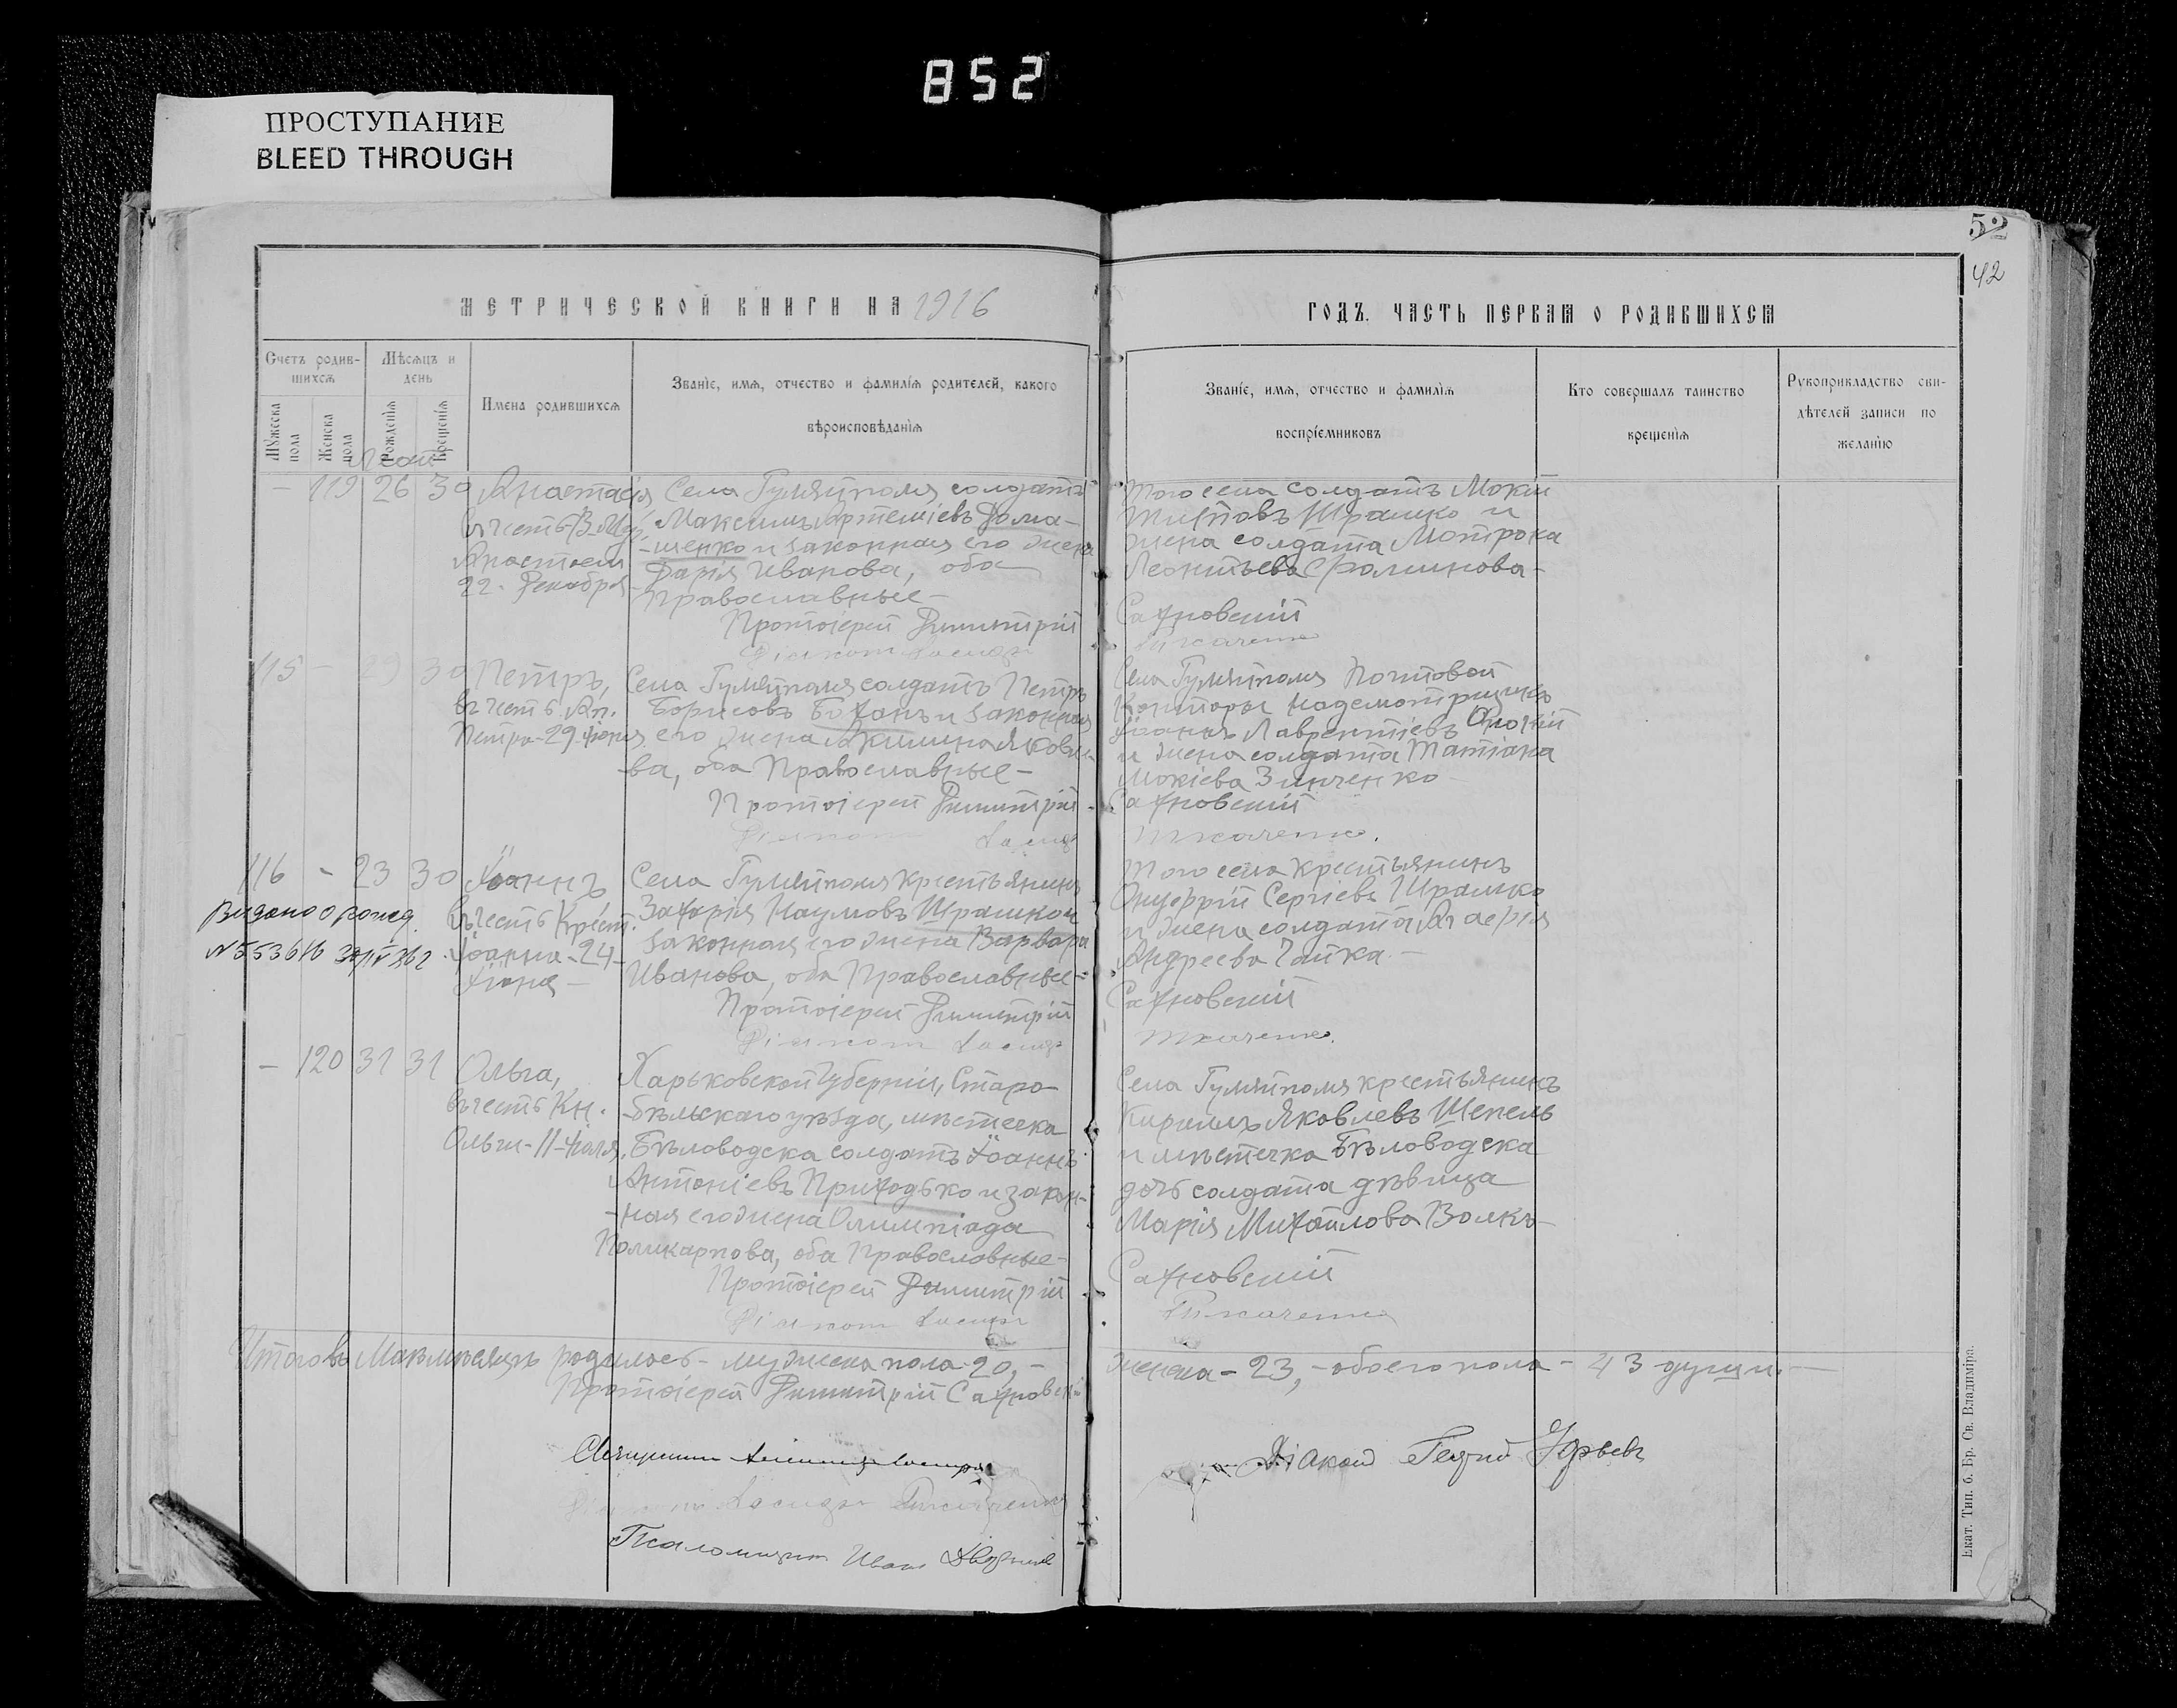 852
ПРОСТУПАНИЕ
BLEED THROUGH
52
42
МЕТРИЧЕСКОЙ КНИГИ НА 1916
ГОДЪ. ЧАСТЬ ПЕРВАЯ О РОДИВШИХСЯ
Счетъ родившихся
Мѣсяцъ и день
Мужеска пола
Женска пола
Рожденія
Крещенія
Имена родившихся
Званіе, имя, отчество и фамилія родителей, какого вѣроисповѣданія
Званіе, имя, отчество и фамилія воспріемниковъ
Кто совершалъ таинство крещенія
Рукоприкладство свидѣтелей записи по желанію
- 119 26 30 Анастасія
въ честь В. Муч.
Анастасіи
22. Декабря
Села Гуляйполя солдатъ
Максимъ Артеміевъ Дома-
-шенко и законная его жена
Дарія Иванова, оба
Православные-
Протоіерей Димитрій
Того села солдатъ Мокій
Титовъ Шрамко и
жена солдата Мотрона
Леонтьева
Сахновскій
115 - 29 30 Петръ,
въ честь Ап.
Петра-29-Іюня
Села Гуляйполя солдатъ Петръ
Борисовъ Боханъ и законная
его жена Акилина Яковле-
-ва, оба Православные-
Протоіерей Димитрій
Села Гуляйполя Почтовой
Конторы надсмотрщикъ
Іоаннъ Лаврентіевъ
и жена солдата Татіана
Мокіева Зинченко
Сахновскій
Ткаченко.
116 - 23 30 Іоаннъ
въ честь Крест.
Іоанна-24-
Іюня-
Видано о рожд.
Села Гуляйполя крестьянинъ
Захарія Наумовъ Шрамко и
законная его жена Варвара
Иванова, оба Православные-
Протоіерей Димитрій
Того села крестьянинъ
Онуфрій Сергіевъ Шрамко
и жена солдата Агафія
Андреева Чайка.-
Сахновскій
Ткаченко.
- 120 31 31 Ольга,
въ честь Кн.
Ольги-11-Іюля.
Харьковской Губерніи, Старо-
-бѣльскаго уѣзда, мѣстечка
Бѣловодска солдатъ Іоаннъ
Антоніевъ Приходько и закон-
-ная его жена Олимпіада
Поликарпова, оба Православные-
Протоіерей Димитрій
Села Гуляйполя крестьянинъ
Кириллъ Яковлевъ Шепель
и мѣстечка Бѣловодска
дочь солдата дѣвица
Марія Михайлова Волкъ-
Сахновскій
Ткаченко
Итого въ Маѣ мѣсяцѣ родилось- мужеска пола-20,-
женска-23,-обоего пола-43 души.-
Протоіерей Димитрій Сахновскій
Псаломщикъ Иванъ
Діаконъ
Екат. Тип. б. Бр. Св. Владиміра.